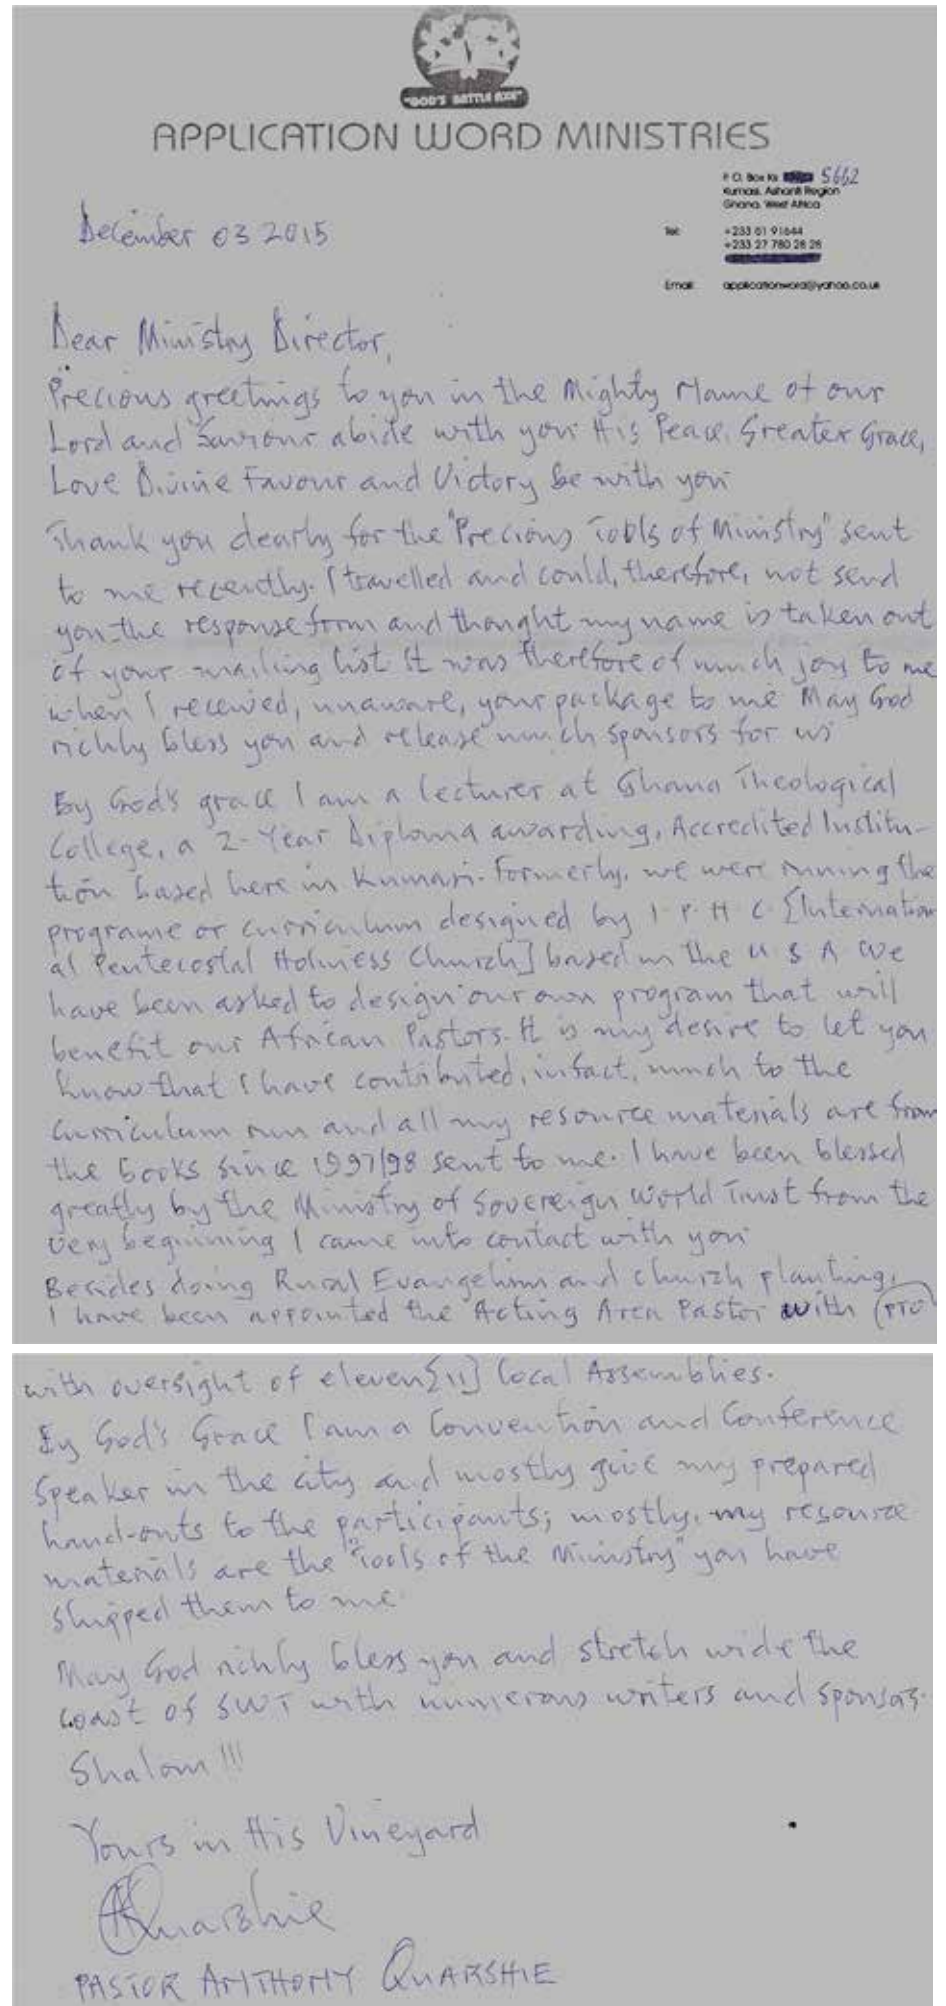 "GOD'S BATTLE AXE"
APPLICATION WORD MINISTRIES
P. O. Box Ks 5662
Kumasi, Ashanti Region
Ghana, West Africa
December 03 2015
Tel: +233 51 91644
+233 27 780 28 28
Email: applicationword@yahoo.co.uk
Dear Ministry Director,
Precious greetings to you in the Mighty Name of our
Lord and Saviour abide with you. His Peace, Greater Grace,
Love Divine Favour and Victory be with you
Thank you dearly for the "Precious Tools of Ministry" sent
to me recently. I travelled and could, therefore, not send
you the response form and thought my name is taken out
of your mailing list It was therefore of much joy to me
when I received, unaware, your package to me May God
richly bless you and release much sponsors for us
By God's grace I am a lecturer at Ghana Theological
College, a 2-Year Diploma awarding, Accredited Institu-
tion based here in Kumasi. Formerly, we were running the
programe or curriculum designed by I. P. H. C. [Internation
al Pentecostal Holiness Church] based in the U S A We
have been asked to design our own program that will
benefit our African Pastors. It is my desire to let you
know that I have contributed, infact, much to the
curriculum run and all my resource materials are from
the books since 1997/98 sent to me. I have been blessed
greatly by the Ministry of Sovereign World Trust from the
very beginning I came into contact with you
Besides doing Rural Evangelism and church planting,
I have been appointed the Acting Area Pastor with (PTO)
with oversight of eleven [11] local Assemblies.
By God's Grace I am a Convention and Conference
Speaker in the city and mostly give my prepared
hand-outs to the participants; mostly, my resource
materials are the "Tools of the Ministry" you have
shipped them to me.
May God richly bless you and stretch wide the
coast of SWT with numerous writers and sponsors.
Shalom!!!
Yours in His Vineyard
AQuarshie
PASTOR ANTHONY QUARSHIE